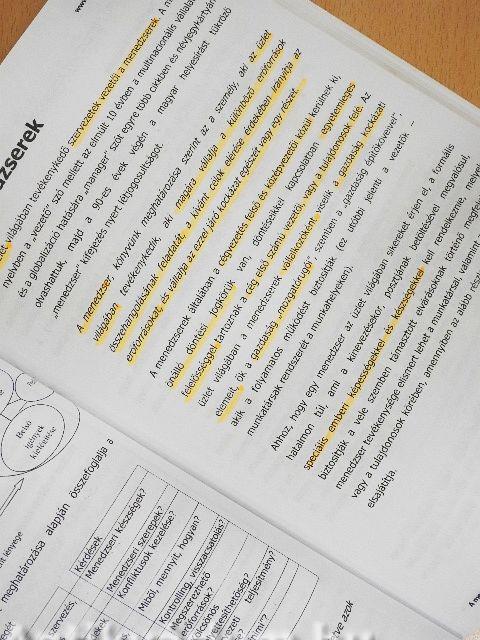 zserek
világában tevékenykedő szervezetek vezetői a menedzserek. A
nyelvben a „vezető" szó mellett az elmúlt 10 évben a multinacionális
és a globalizáció hatására „manager" szót egyre több cikkben és névjegykártyán
olvashattuk, majd a 90-es évek végén a magyar helyesírást tükröző
„menedzser" kifejezés nyert létjogosultságot.
A menedzser, könyvünk meghatározása szerint az a személy, aki az üzlet
világában tevékenykedik, aki magára vállalja a különböző erőforrások
összehangolásának feladatát, a kívánt célok elérése érdekében irányítja az
erőforrásokat, és vállalja az azzal járó kockázat egészét vagy egy részét.
A menedzserek általában a cégvezetés felső és középvezetői közül kerülnek ki,
önálló döntési jogkörük van, döntéseikkel kapcsolatban egyetemleges
felelősséggel tartoznak a cég első számú vezetői, vagy a tulajdonosok felé. Az
üzlet világában a menedzserek vállalkozóként viselik a gazdaság kockázati
elemeit, ők a gazdaság „mozgatórugói" szemben a „gazdaság építőköveivel",
akik a folyamatos működést biztosítják (ez utóbbi jelenti a vezetők –
munkatársak rendszerét a munkahelyeken).
Ahhoz, hogy egy menedzser az üzlet világában sikereket érjen el, a formális
hatalmon túl, ami a kinevezésekor, posztjának betöltésével megvalósul,
speciális emberi képességekkel és készségekkel kell rendelkeznie, melyek
biztosítják a vele szemben támasztott elvárásoknak történő
menedzser tevékenysége elismert lehet a munkatársai, valamint
vagy a tulajdonosok körében, amennyiben az alább
elsajátítja.
Belső
igények
lényege
meghatározása alapján összefoglalja a
Kérdések
Menedzseri készségek?
Menedzseri szerepek?
Konfliktusok kezelése?
Miből, mennyit, hogyan?
Kontrolling, visszacsatolás?
Megszerezhető
erőforrások?
teljesítmény?
azok